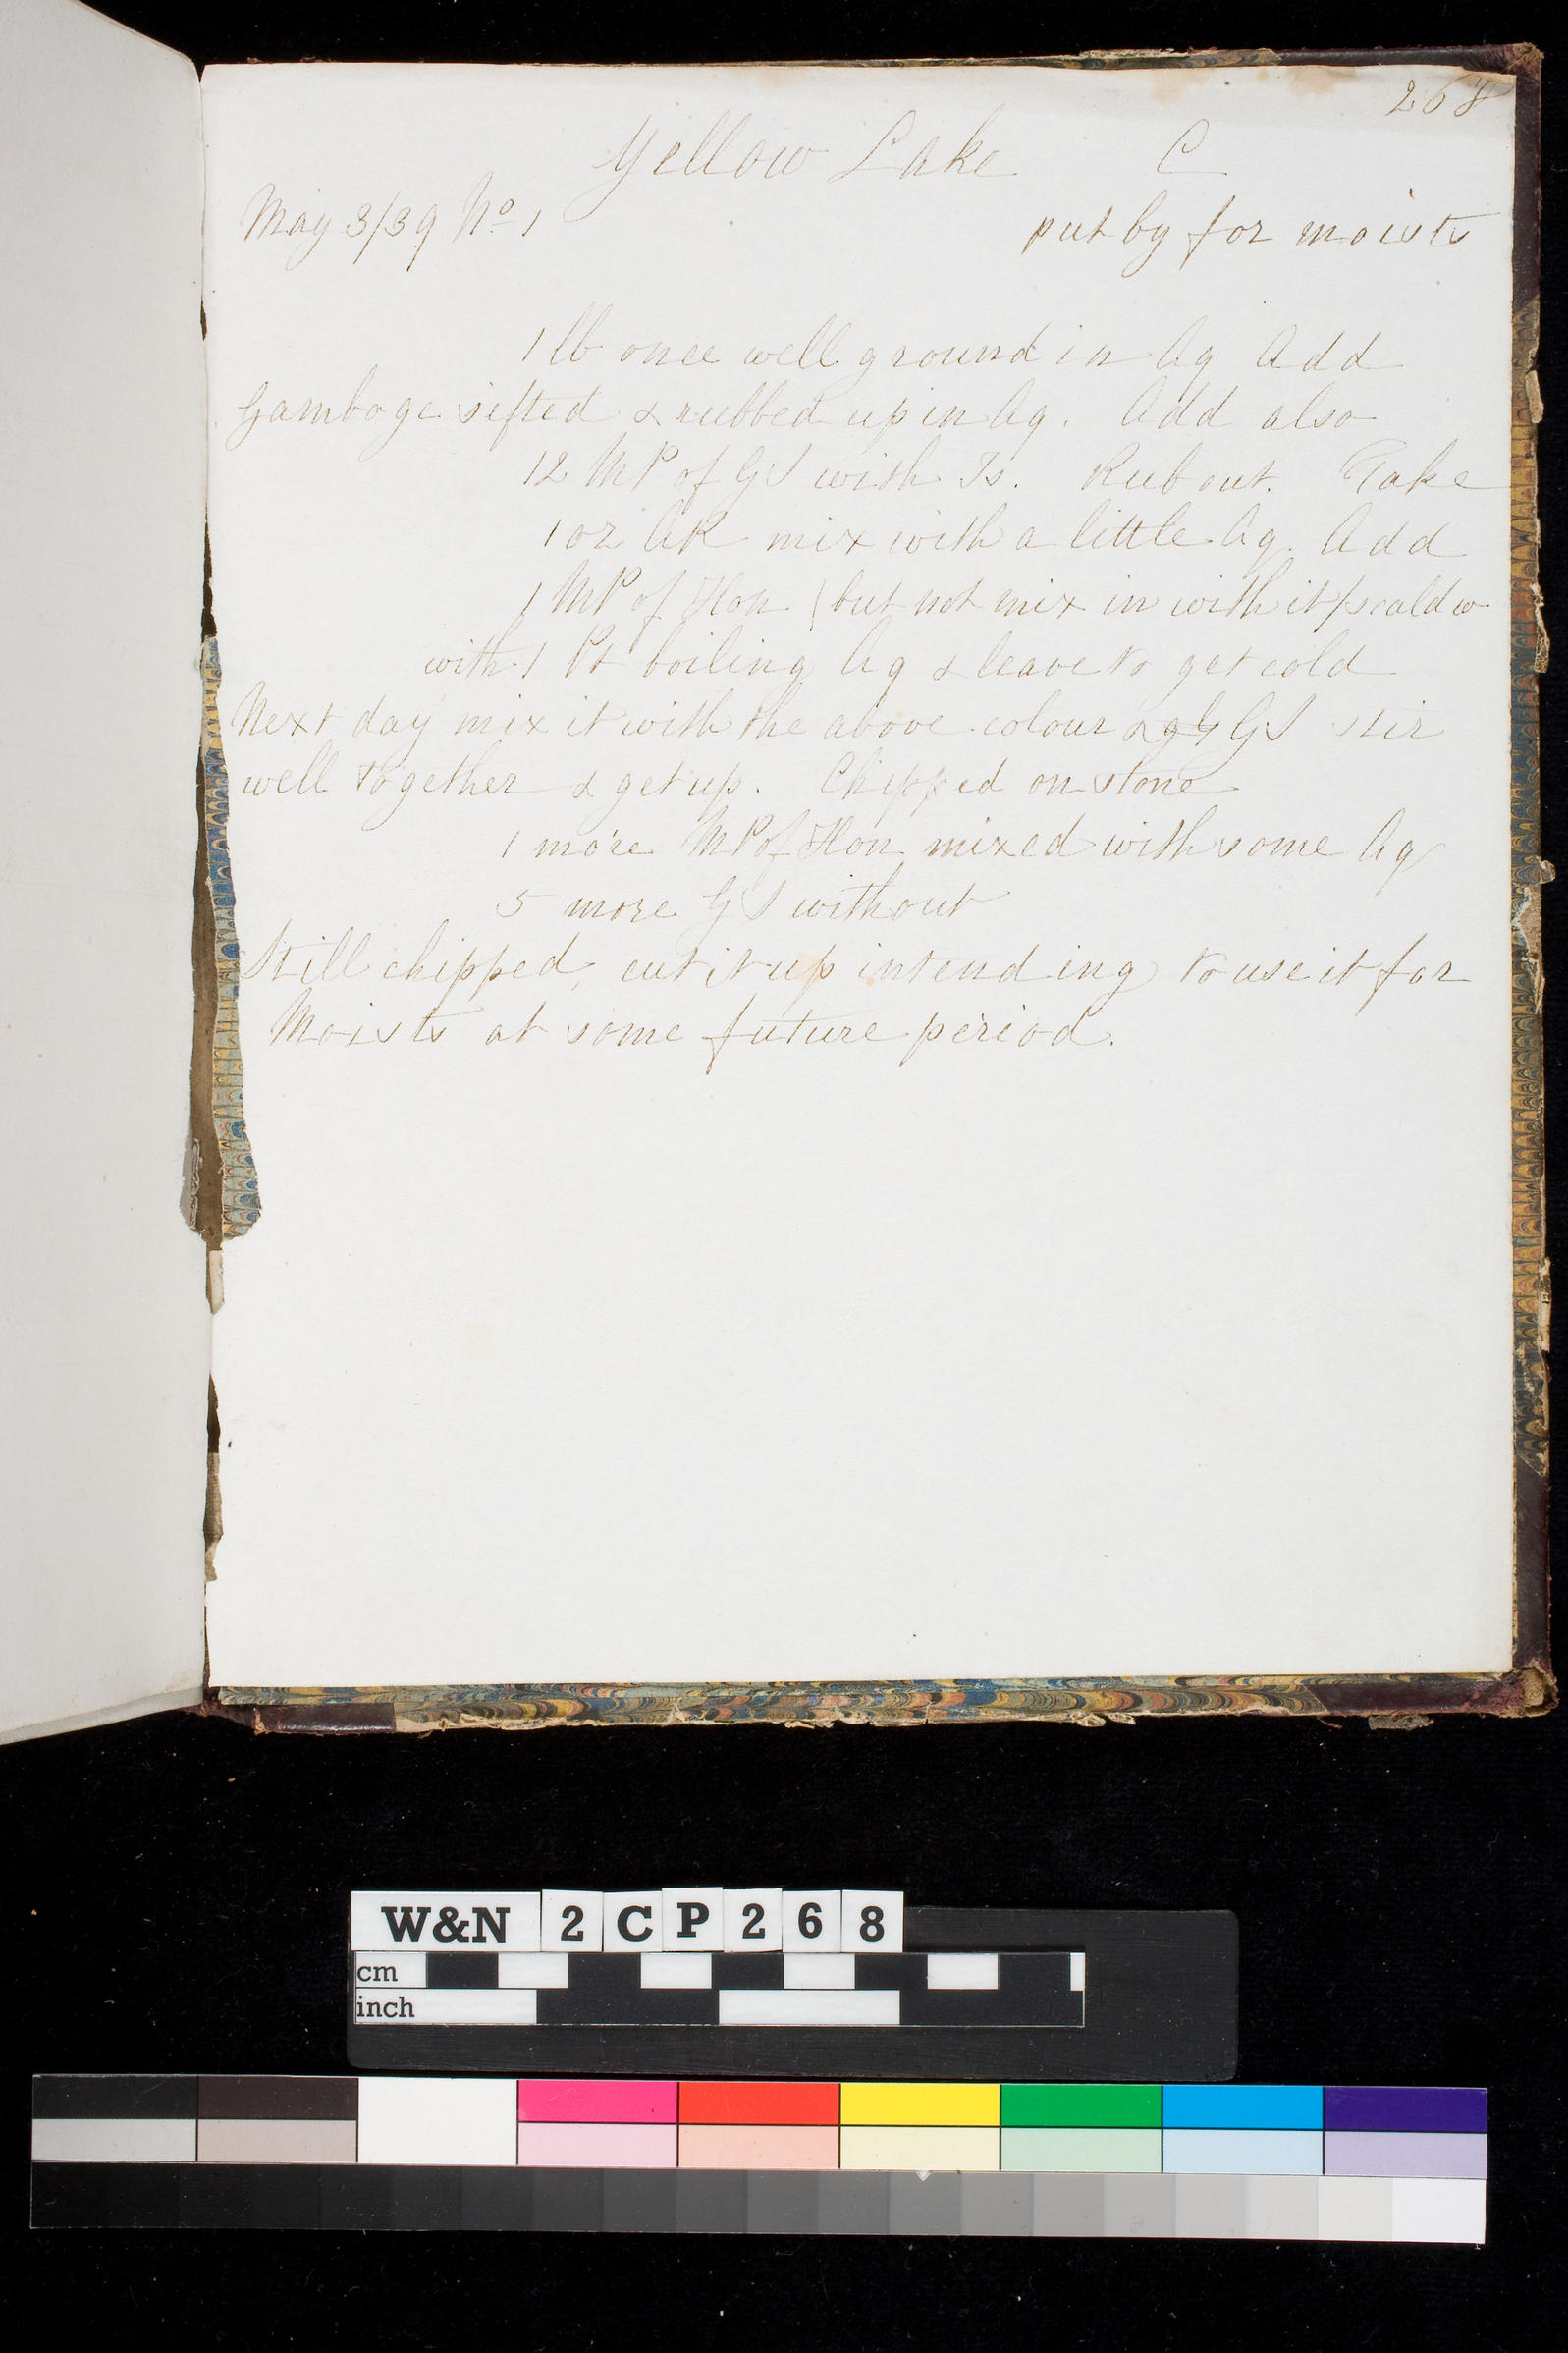 268
Yellow Lake C
May 3/39 No 1 put by for moists
1 lb once well ground in Aq Add
Gamboge sifted & rubbed up in Aq. Add also
12 MP of GS with Is. Rub out. Take
1 oz AR mix with a little Aq. Add
1 MP of Hon (but not mix in with it) scald w
with 1 Pt boiling Aq & leave to get cold
Next day mix it with the above colour & GS stir
well together & get up. Chipped on stone
1 more MP of Hon mixed with some Aq
5 more GS without
Still chipped, cut it up intending to use it for
Moists at some future period.
W&N 2 C P 2 6 8
cm
inch